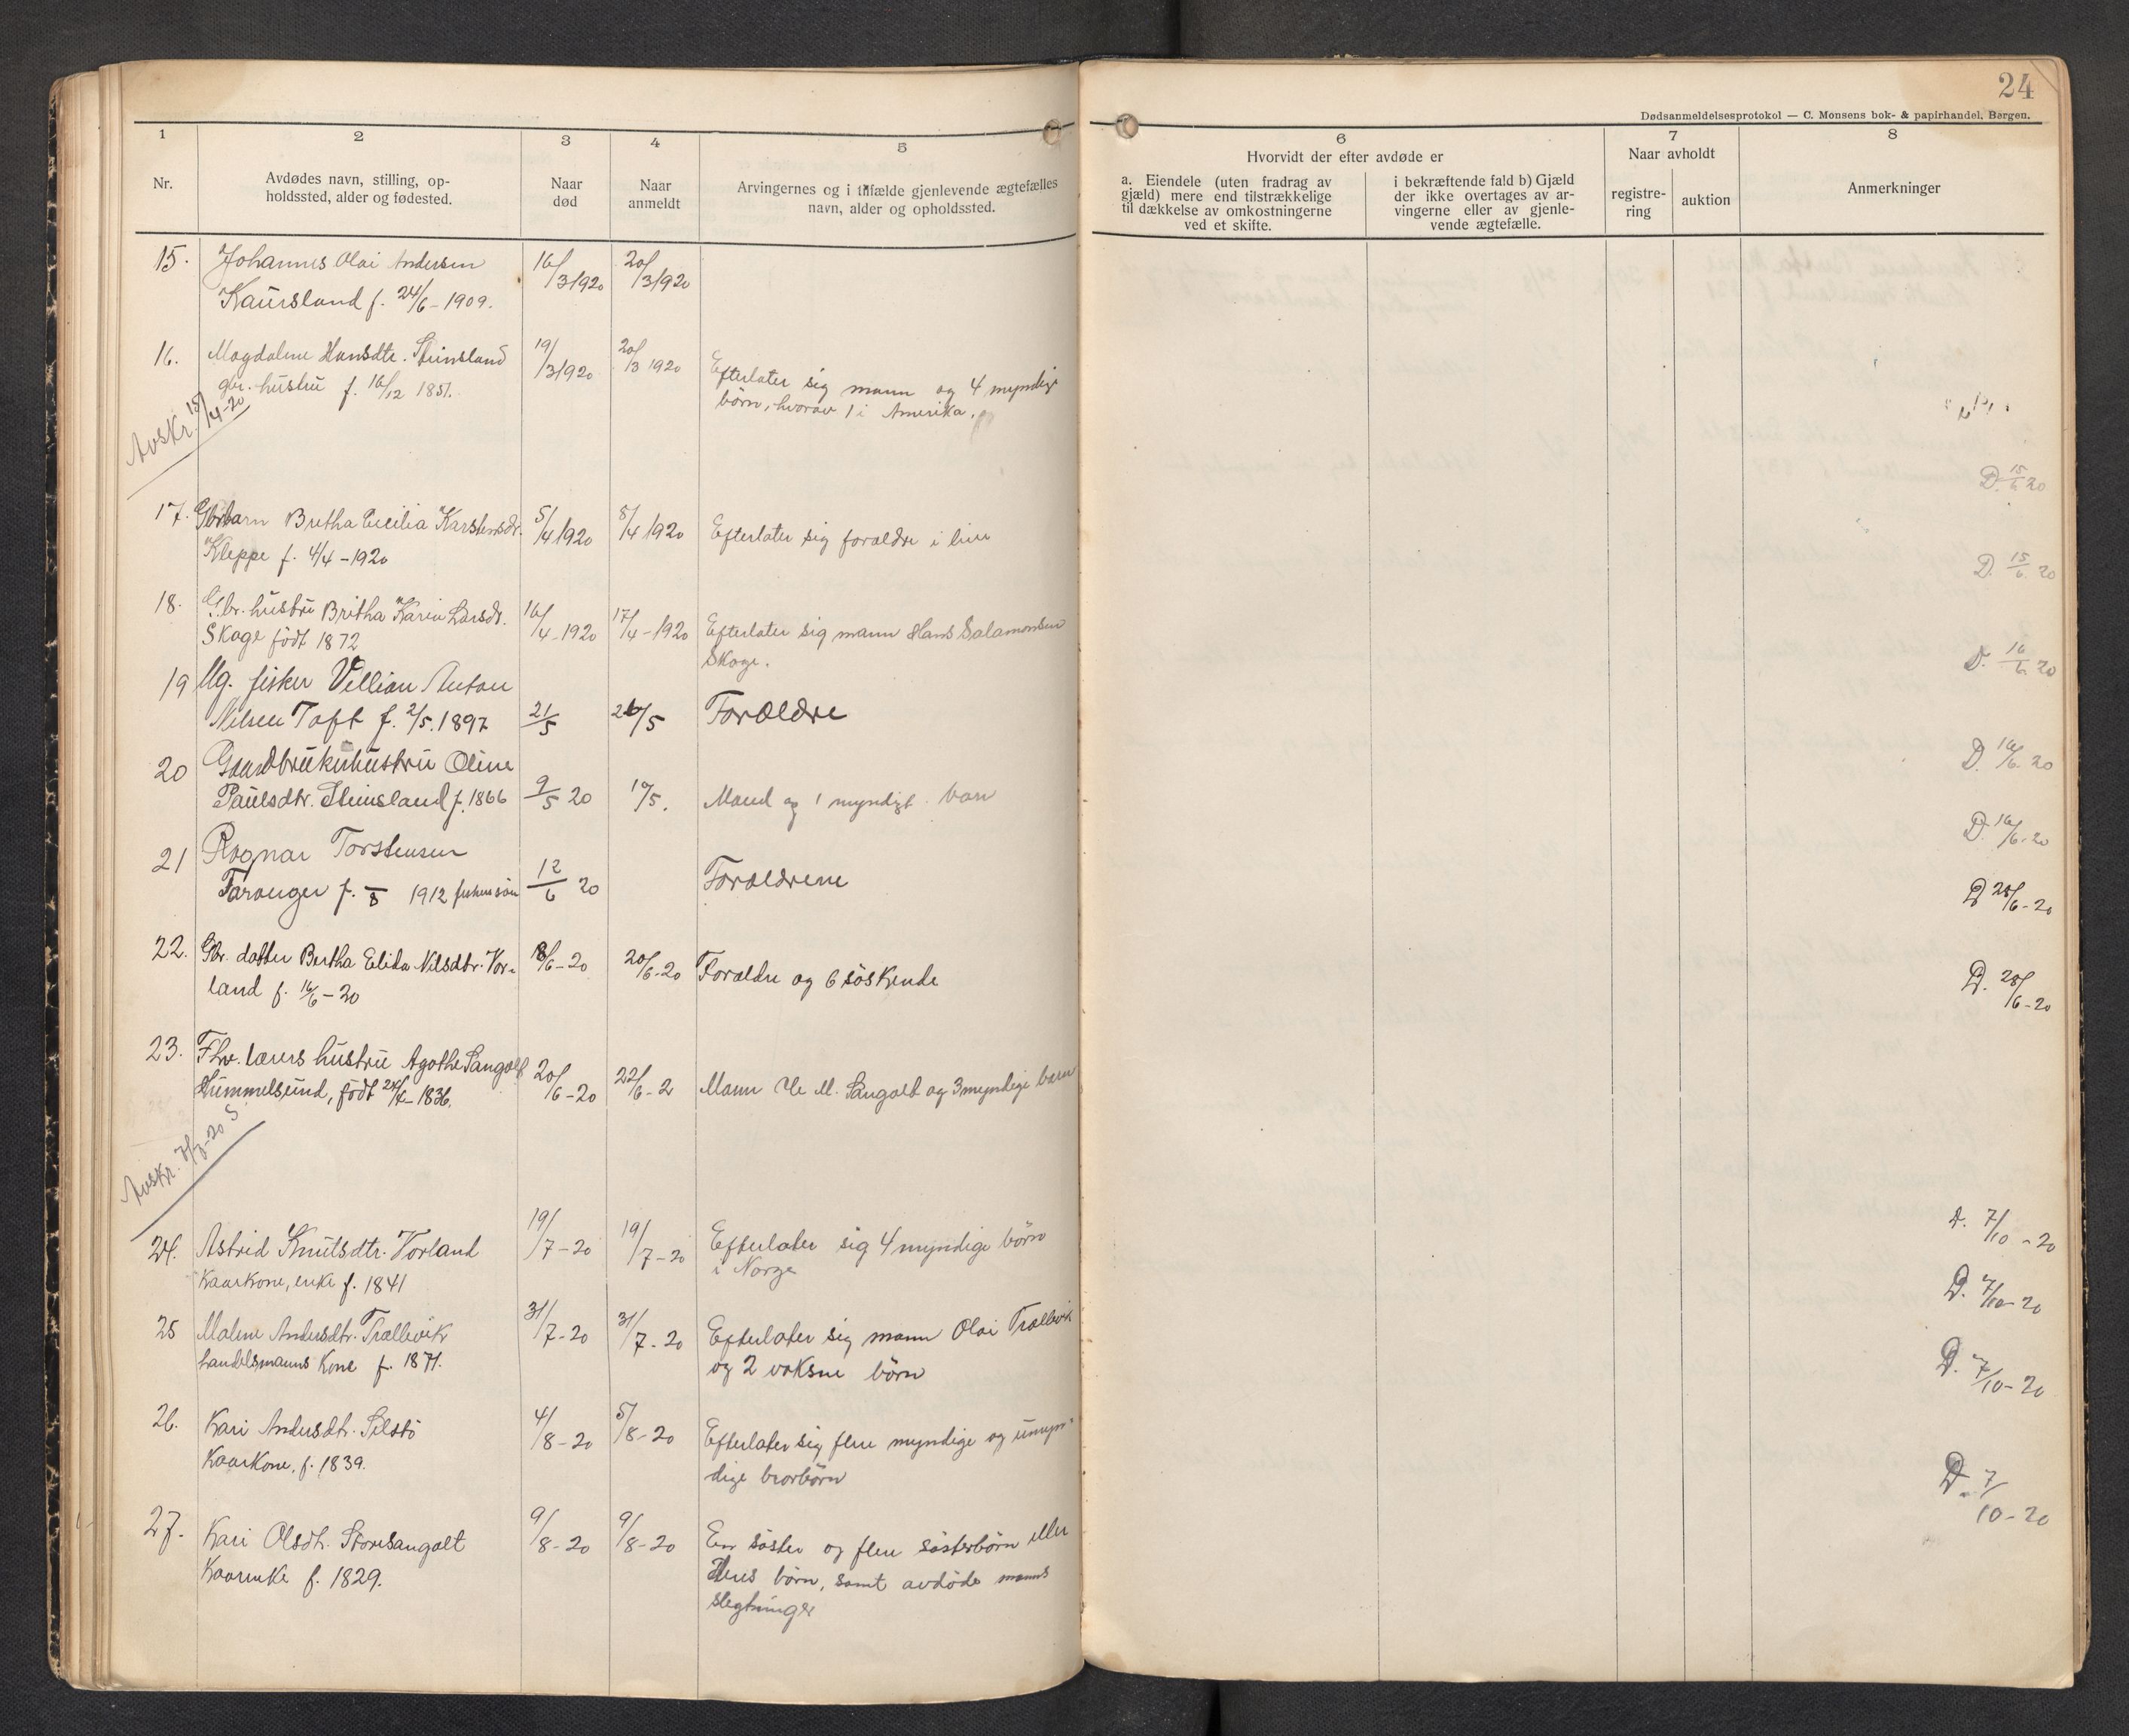 24
Dødsanmeldelsesprotokol — C. Monsens bok- & papirhandel, Bergen.
1 2 3 4 5 6 7 8
Nr.
Avdødes navn, stilling, op-
holdssted, alder og fødested.
Naar
død
Naar
anmeldt
Arvingernes og i tilfælde gjenlevende ægtefælles
navn, alder og opholdssted.
Hvorvidt der efter avdøde er
a. Eiendele (uten fradrag av
gjæld) mere end tilstrækkelige
til dækkelse av omkostningerne
ved et skifte.
i bekræftende fald b) Gjæld
der ikke overtages av ar-
vingerne eller av gjenle-
vende ægtefælle.
Naar avholdt
registre-
ring
auktion
Anmerkninger
15. Johannes Olai Andersen 16/3 1920 20/3 1920
Kaursland f. 24/6 - 1909.
16. Magdalene Hansdtr. Steinsland 19/3 1920 20/3 1920 Efterlater sig mann og 4 myndige
gbr. hustru f. 16/12 1851. børn, hvorav 1 i Amerika.
Avskr. 15/4-20
D. 15/6 20
17. Gbr barn Bretha Cecilia Karstensdr. 5/4 1920 8/4 1920 Efterlater sig forældre i live
Kleppe f. 4/4 - 1920
D. 15/6 20
18. Gbr. hustru Britha Karin Larsdr. 16/4 - 1920 17/4 - 1920 Efterlater sig mann Hans Salamonsen
Skoge født 1872 Skoge.
D. 16/6 20
19 Ug. fisker Villian Anton
Nilsen Toft f. 2/5. 1897 21/5 26/5 Forældre
D. 16/6. 20
20 Gaardbrukerhustru Oline
Paulsdtr. Steinsland f. 1866 9/5 20 19/5. Mand og 1 myndigt barn
D. 16/6-20
21 Ragnar Torstensen
Taranger f. 8 1912 fiskers søn 12/6 20 Forældrene
D 28/6-20
22. Gbr. datter Bertha Elida Nilsdtr. Vor- 18/6-20 20/6-20 Forældre og 6 søskende
land f. 16/6-20
D. 28/6-20
23. Fhv. lærers hustru Agathe Sangolt 20/6-20 22/6-2 Mann M. Sangolt og 3 myndige barn
Hummelsund, født 24/4-1836.
Avskr. 7/7-20 S
24. Astrid Knutsdtr. Vorland 19/7-20 19/7-20 Efterlater sig 4 myndige børn
Kaarkone, enke f. 1841 i Norge
D. 7/10-20
25 Malene Andersdtr. Trællevik 31/7-20 31/7-20 Efterlater sig mann Olai Trællevik
handelsmanns Kone f. 1871. og 2 voksne børn
D. 7/10-20
26. Kari Andersdtr. Selstö 4/8-20 5/8-20 Efterlater sig flere myndige og umyn-
Kaarkone, f. 1839. dige brorbørn
D. 7/10-20
27. Kari Olsdtr. Storesangolt 9/8-20 9/8-20 En søster og flere søsterbørn eller
Kaarenke f. 1829. deres børn, samt avdøde manns
slegtninger
D. 7/10-20